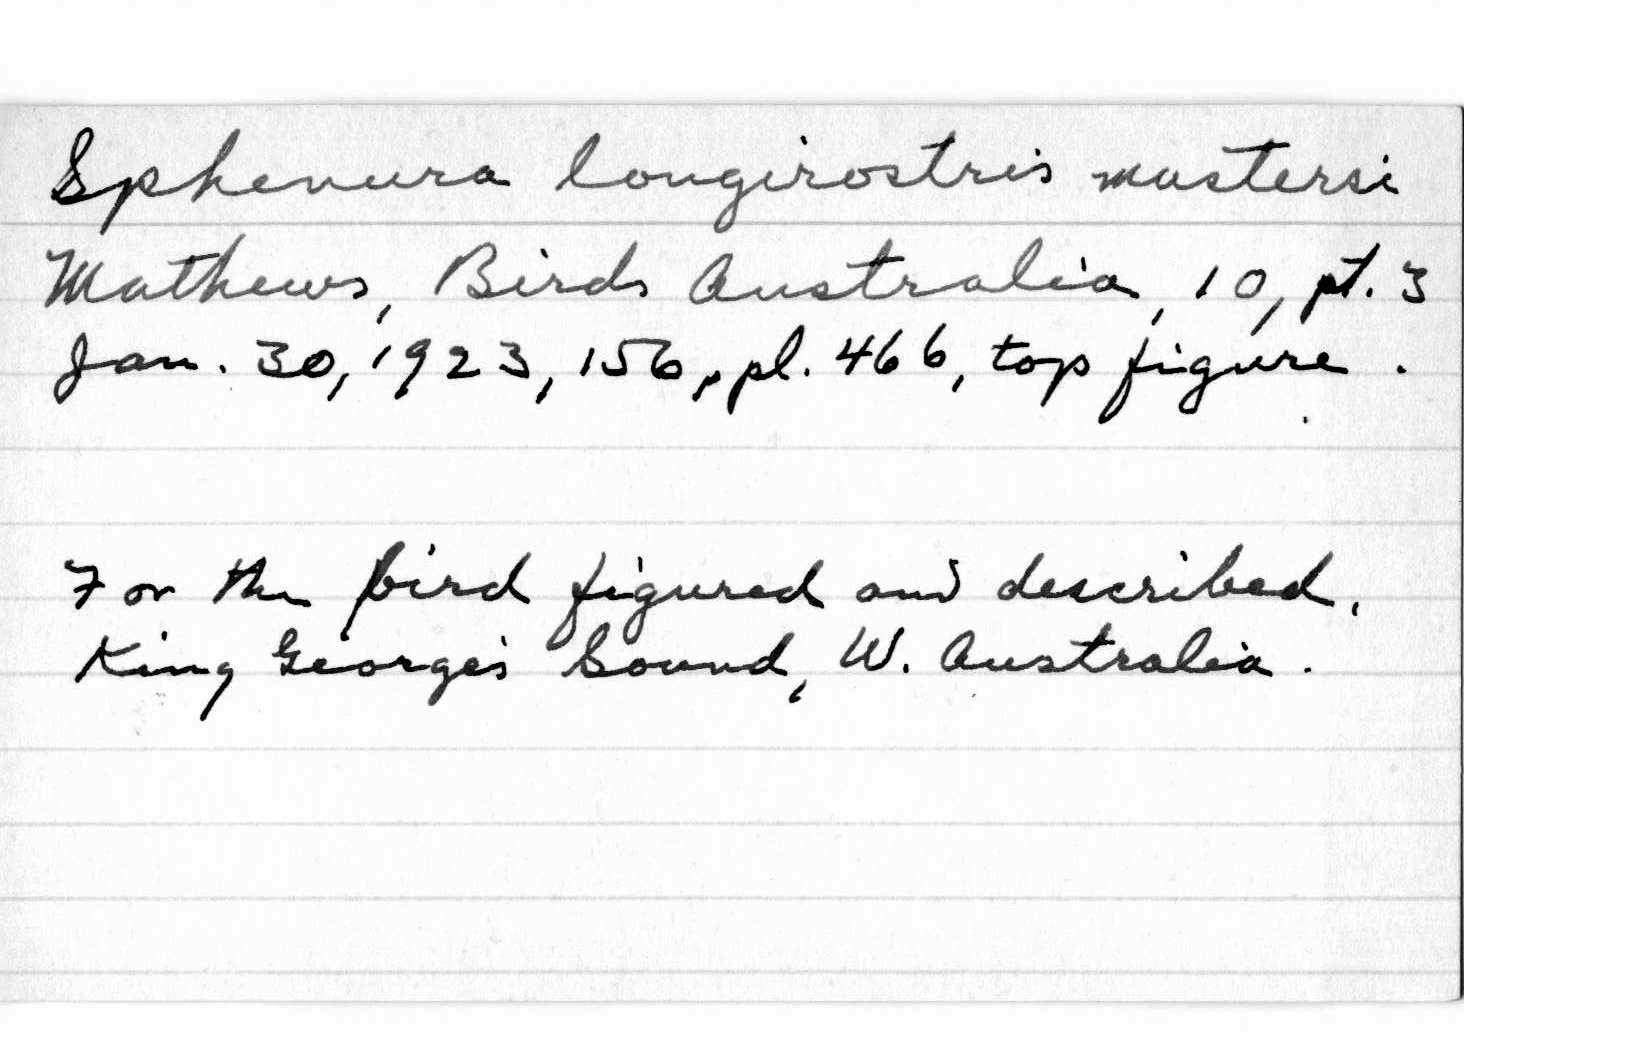 Sphenura longirostris mastersi
Mathews, Birds Australia, 10, pt. 3
Jan. 30, 1923, 156, pl. 466, top figure.
For the bird figured and described,
King George's Sound, W. Australia.